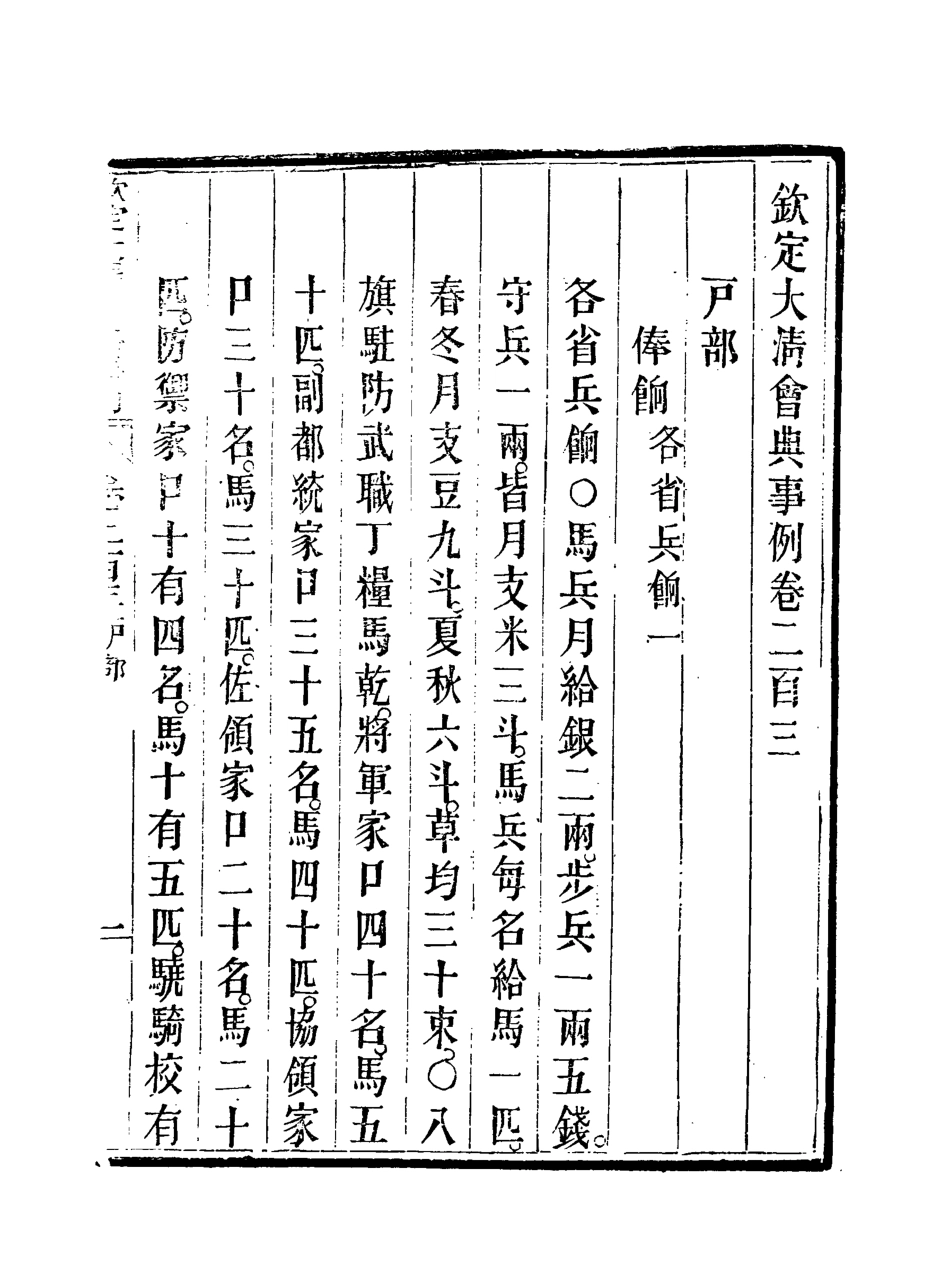 欽定大清會典事例卷二百三
戶部
俸餉各省兵餉一
各省兵餉○馬兵月給銀二兩。步兵一兩五錢。
守兵一兩。皆月支米三斗。馬兵每名給馬一匹。
春冬月支豆九斗。夏秋六斗。草均三十束。○八
旗駐防武職丁糧馬乾。將軍家口四十名。馬五
十匹。副都統家口三十五名。馬四十匹。協領家
口三十名。馬三十匹。佐領家口二十名。馬二十
匹。防禦家口十有四名。馬十有五匹。驍騎校有
欽定 卷二百三 戶部 二